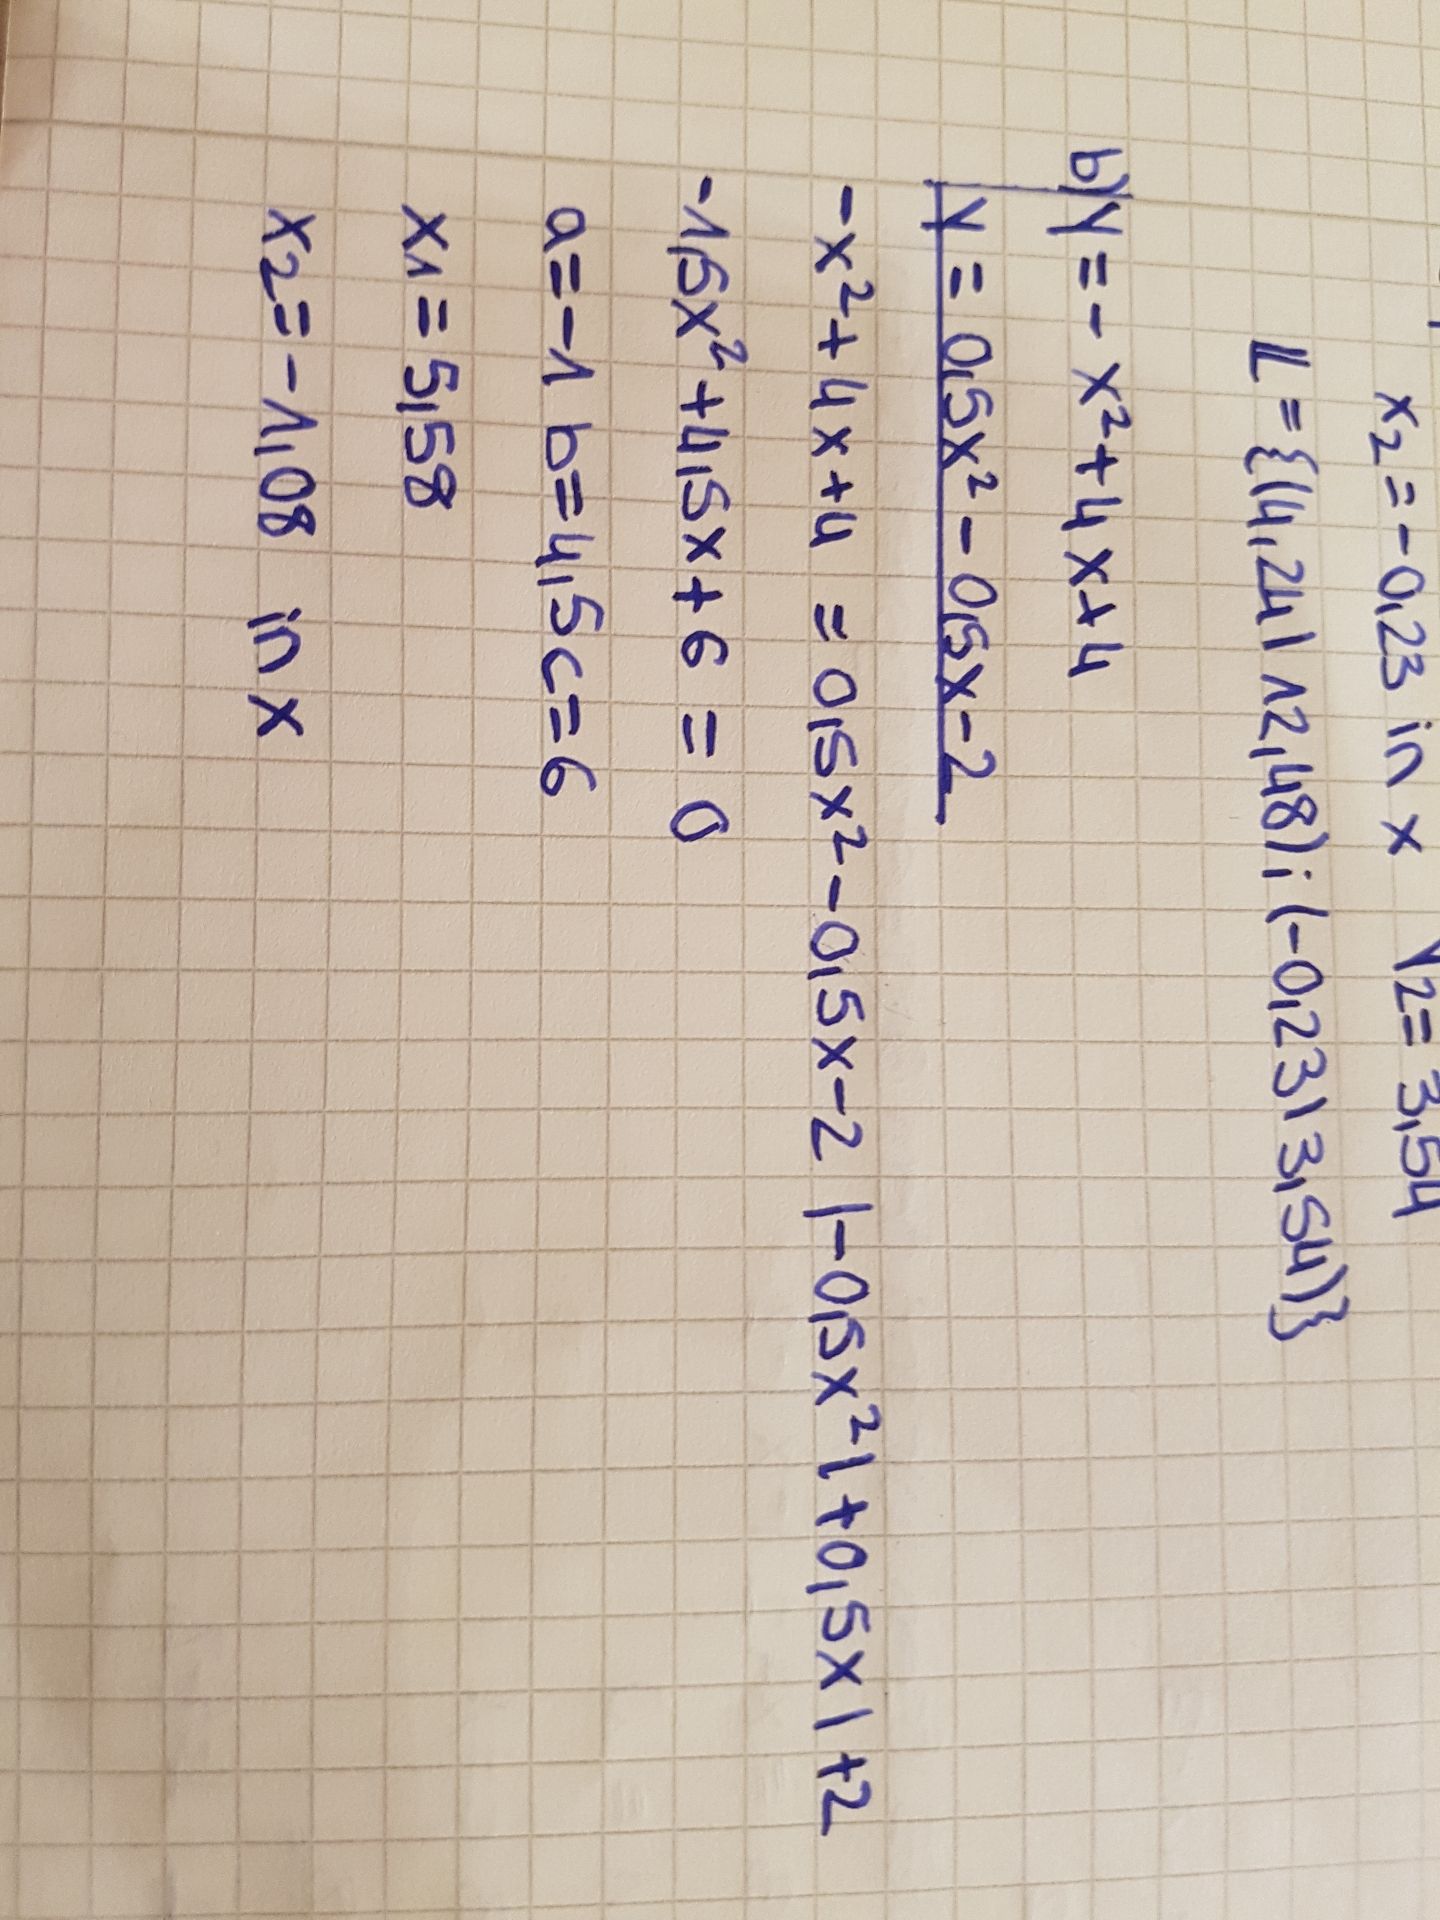 x₂=-0,23 in x y₂=3,54
𝕃={(4,24|12,48);(-0,23|3,54)}
b) y=-x²+4x+4
y=0,5x²-0,5x-2
-x²+4x+4=0,5x²-0,5x-2 |-0,5x²|+0,5x|+2
-1,5x²+4,5x+6=0
a=-1 b=4,5 c=6
x₁=5,58
x₂=-1,08 in x